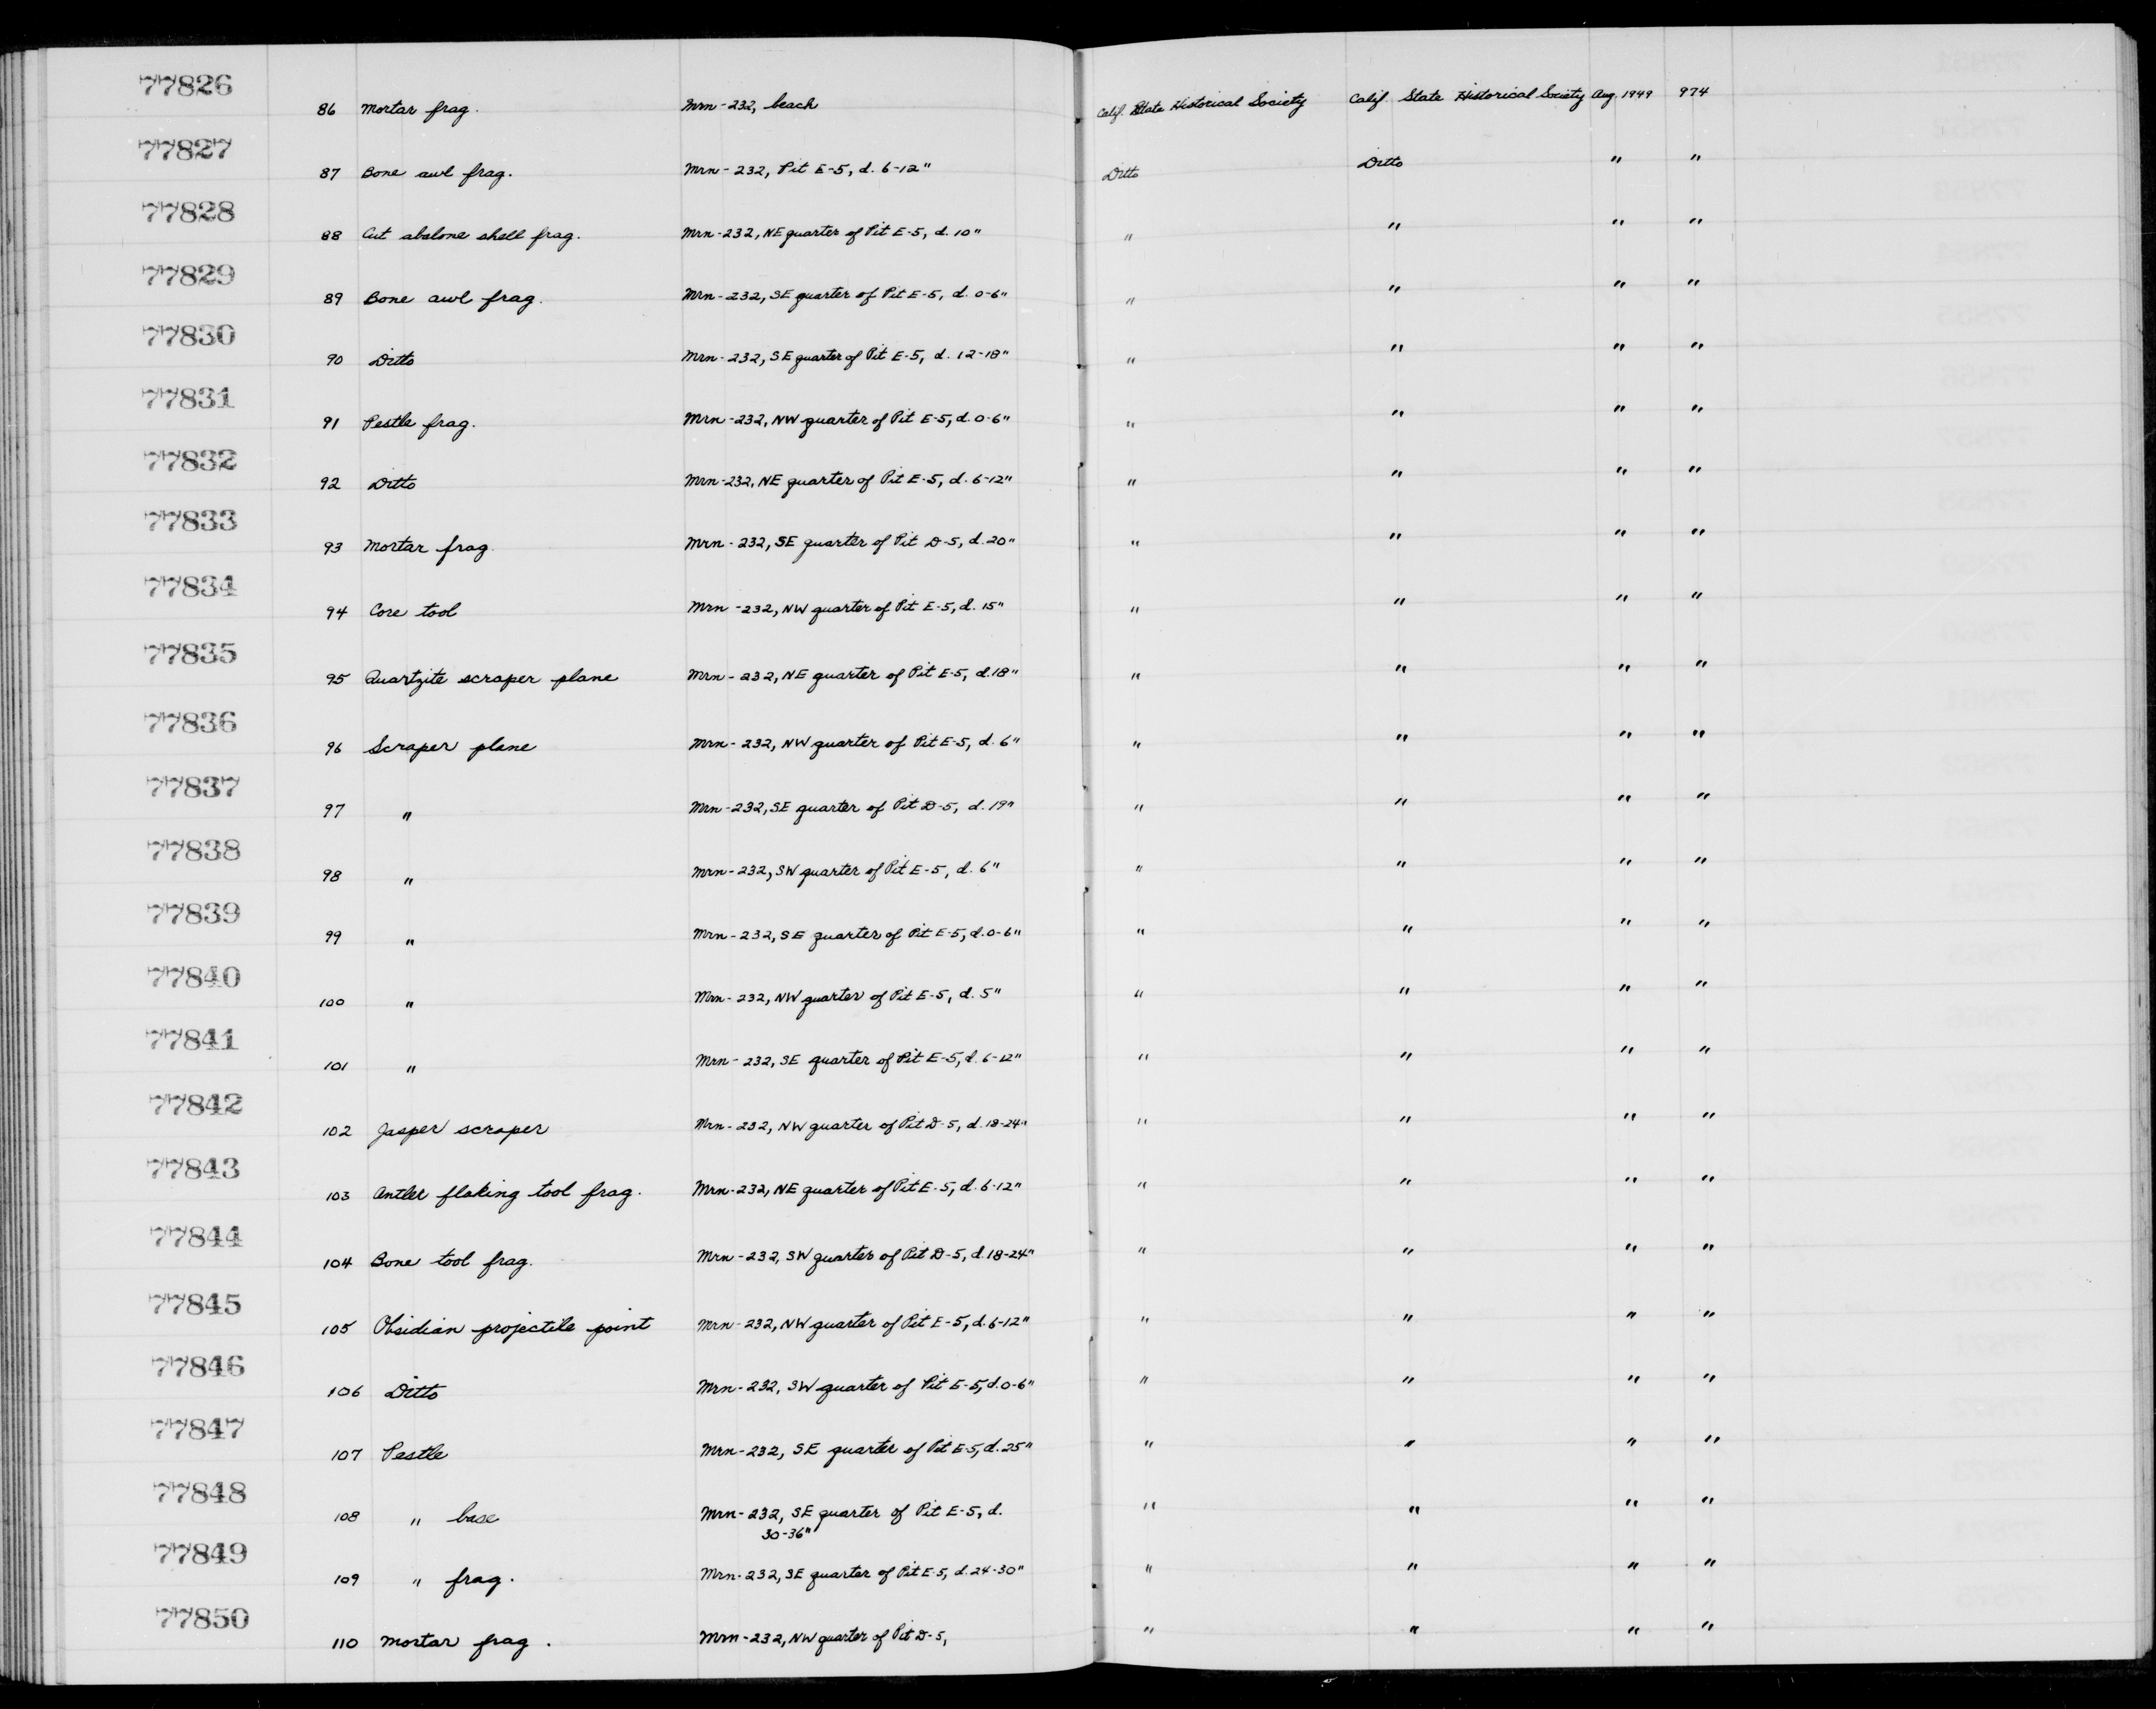 77826 86 Mortar frag. Mrn-232, beach Calif. State Historical Society Calif. State Historical Society Aug. 1949 974
77827 87 Bone awl frag. Mrn-232, Pit E-5, d. 6-12" Ditto Ditto " "
77828 88 Cut abalone shell frag. Mrn-232, NE quarter of Pit E-5, d. 10" " " " "
77829 89 Bone awl frag. Mrn-232, SE quarter of Pit E-5, d. 0-6" " " " "
77830 90 Ditto Mrn-232, SE quarter of Pit E-5, d. 12-18" " " " "
77831 91 Pestle frag. Mrn-232, NW quarter of Pit E-5, d. 0-6" " " " "
77832 92 Ditto Mrn-232, NE quarter of Pit E-5, d. 6-12" " " " "
77833 93 Mortar frag. Mrn-232, SE quarter of Pit D-5, d. 20" " " " "
77834 94 Core tool Mrn-232, NW quarter of Pit E-5, d. 15" " " " "
77835 95 Quartzite scraper plane Mrn-232, NE quarter of Pit E-5, d. 18" " " " "
77836 96 Scraper plane Mrn-232, NW quarter of Pit E-5, d. 6" " " " "
77837 97 " Mrn-232, SE quarter of Pit D-5, d. 19" " " " "
77838 98 " Mrn-232, SW quarter of Pit E-5, d. 6" " " " "
77839 99 " Mrn-232, SE quarter of Pit E-5, d. 0-6" " " " "
77840 100 " Mrn-232, NW quarter of Pit E-5, d. 5" " " " "
77841 101 " Mrn-232, SE quarter of Pit E-5, d. 6-12" " " " "
77842 102 Jasper scraper Mrn-232, NW quarter of Pit D-5, d. 18-24" " " " "
77843 103 Antler flaking tool frag. Mrn-232, NE quarter of Pit E-5, d. 6-12" " " " "
77844 104 Bone tool frag. Mrn-232, SW quarter of Pit D-5, d. 18-24" " " " "
77845 105 Obsidian projectile point Mrn-232, NW quarter of Pit E-5, d. 6-12" " " " "
77846 106 Ditto Mrn-232, SW quarter of Pit E-5, d. 0-6" " " " "
77847 107 Pestle Mrn-232, SE quarter of Pit E-5, d. 25" " " " "
77848 108 " base Mrn-232, SE quarter of Pit E-5, d. " " " "
30-36"
77849 109 " frag. Mrn-232, SE quarter of Pit E-5, d. 24-30" " " " "
77850 110 Mortar frag. Mrn-232, NW quarter of Pit D-5, " " " "